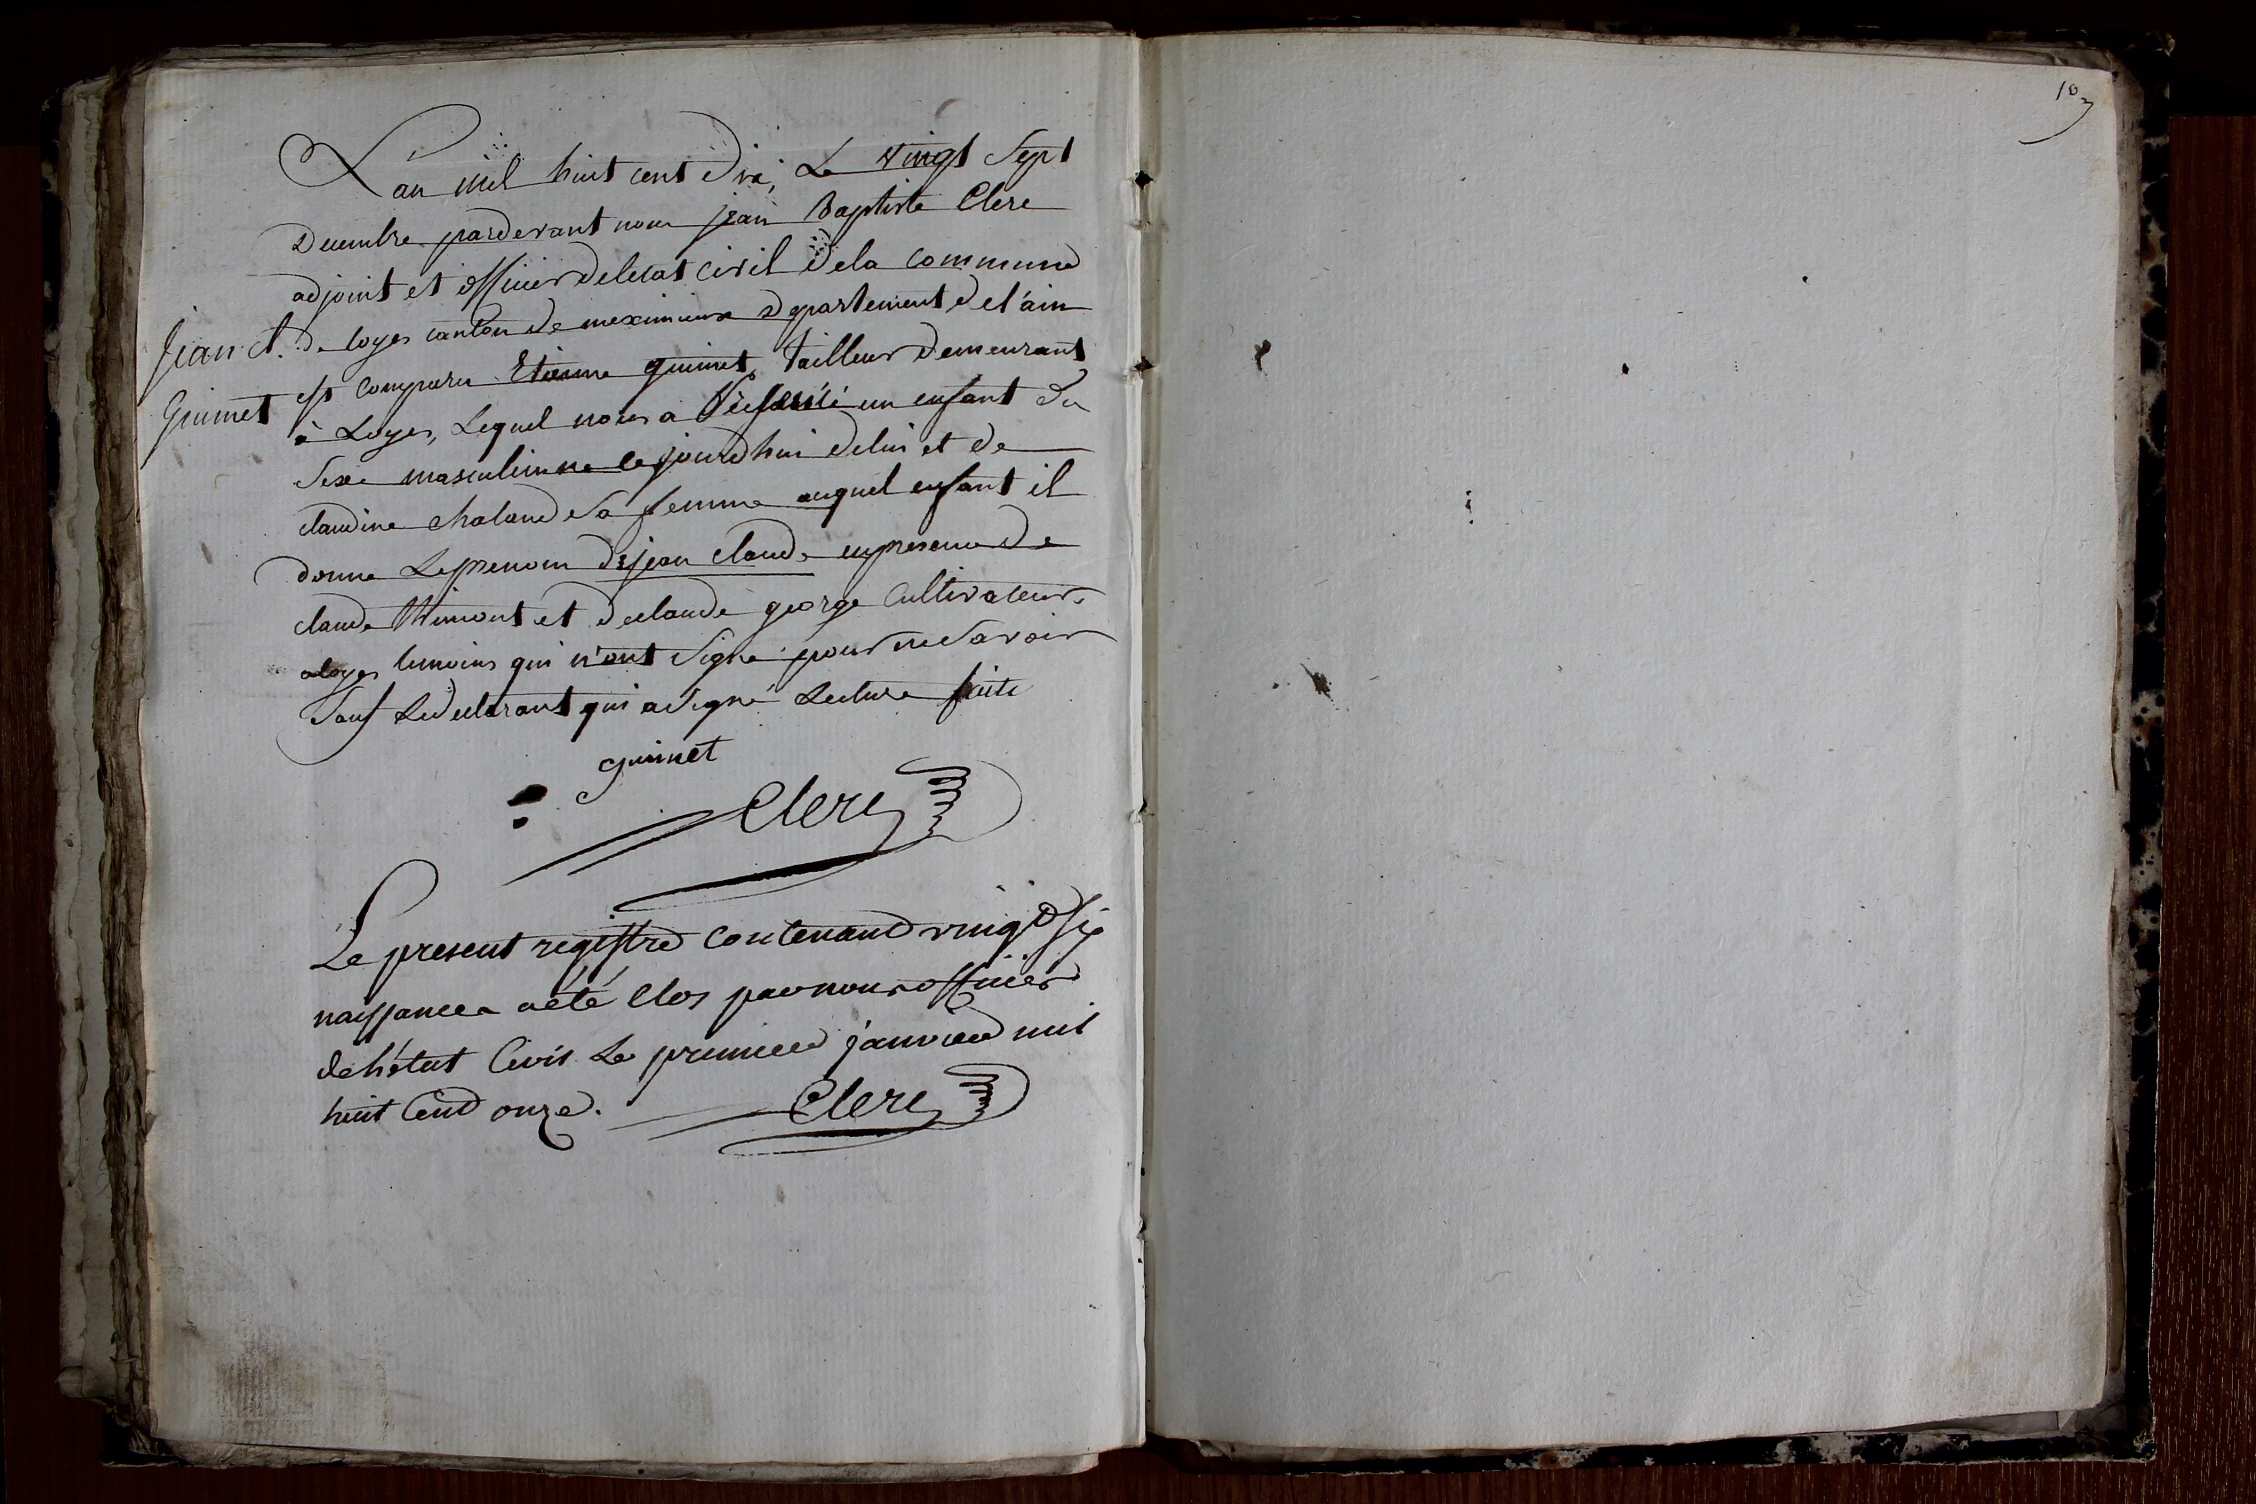 L'an mil huit cent dix, Le vingt Sept
Decembre pardevant nous jean Baptiste Clerc
adjoint et officier deletat civil dela commune
de loyes canton de meximieux departement del'ain
Jean Cl.
Guinet
est comparu Etienne guinet, tailleur demeurant
à Loyes, Lequel nous a présenté un enfant du
Sexe masculin né cejourdhui delui et de
claudine chaland Sa femme auquel enfant il
donne Leprenom dejean claude enpresence de
claude et declaude george Cultivateurs
aloyes temoins qui n'ont Signé pour nesavoir
Sauf Ledeclarant qui asigné Lecture faite
guinet
Clerc
Le present registre contenant vingt six
naissances aété Clos par nous officier
de l'état Civil Le premier janvier mil
huit Cent onze.
Clerc